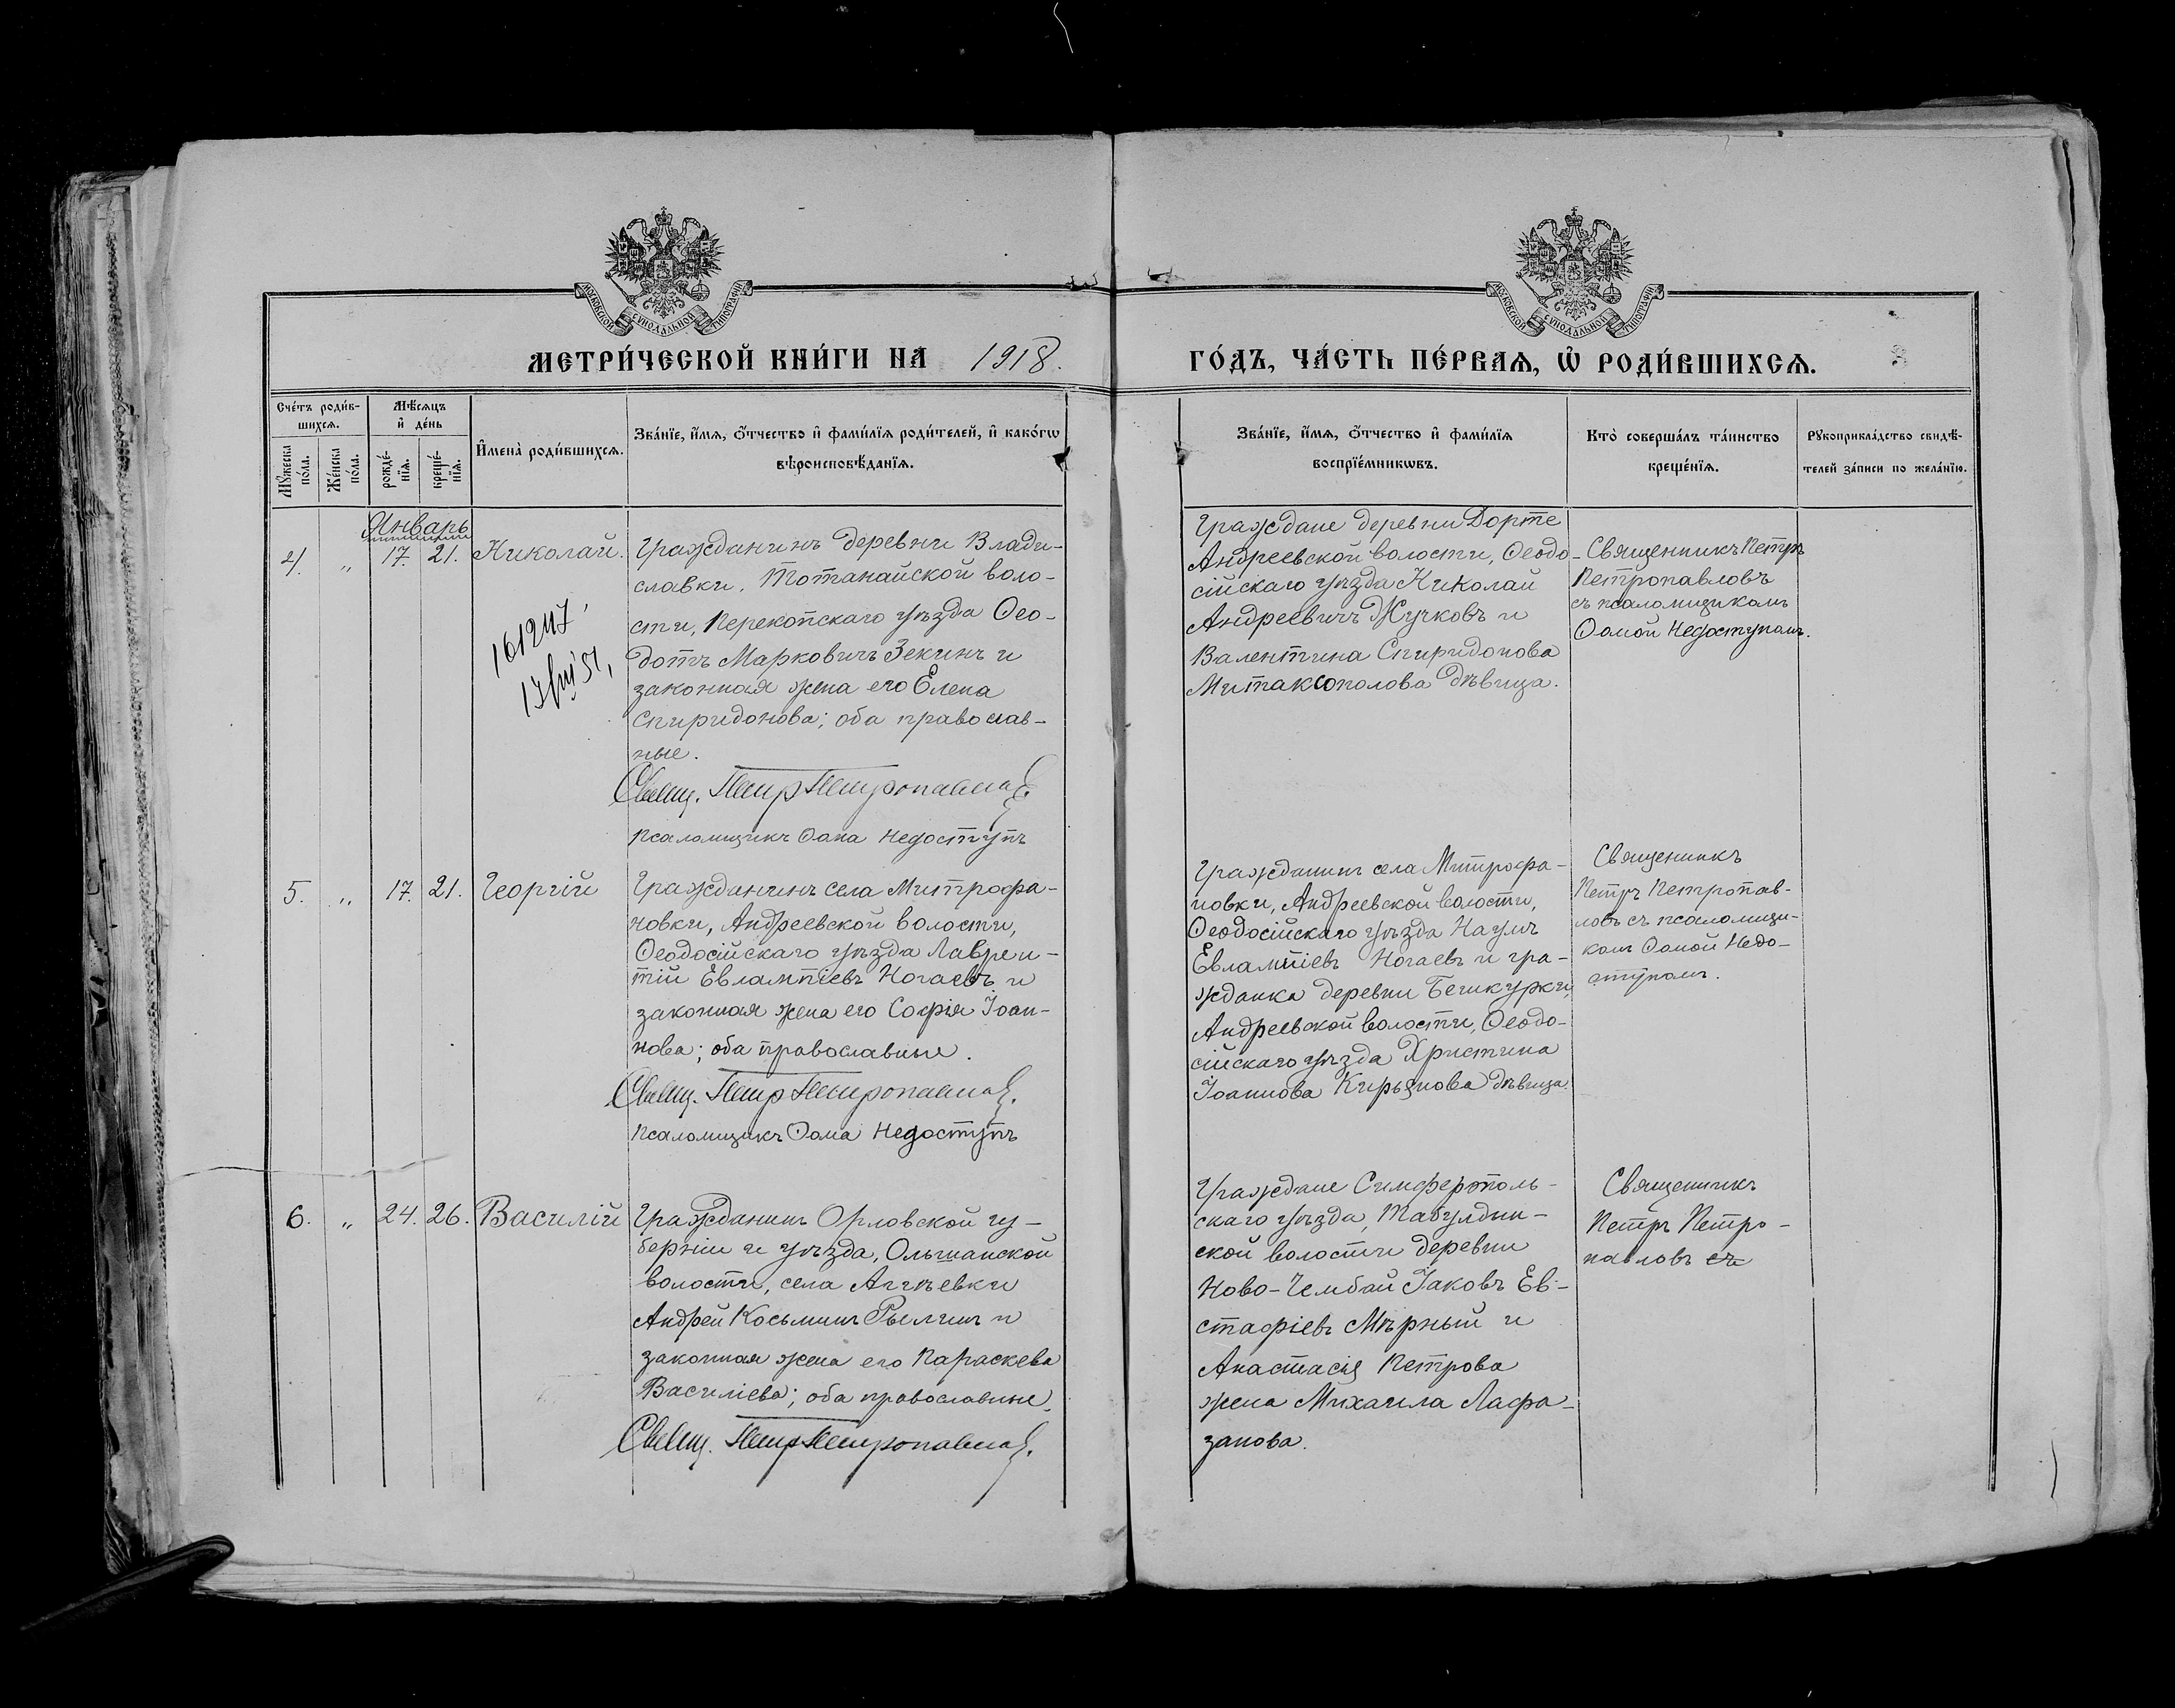 МОСКОВСКОЙ СѴНОДАЛЬНОЙ ТИПОГРАФІИ
МОСКОВСКОЙ СѴНОДАЛЬНОЙ ТИПОГРАФІИ
МЕТРИ́ЧЕСКОЙ КНИ́ГИ НА 1918.
ГО́ДЪ, ЧА́СТЬ ПЕ́РВАѦ, Ѡ҆ РОДИ́ВШИХСѦ.
Сче́тъ роди́в-
шихсѧ.
Мѣ́сѧцъ
и҆ де́нь
Мꙋ́жеска
по́ла.
Же́нска
по́ла.
рожде́-
нїѧ.
креще́-
нїѧ.
И҆мена̀ роди́вшихсѧ.
Зва́нїе, и҆́мѧ, ѻ҆́тчество и҆ фами́лїѧ роди́телей, и҆ како́гѡ
вѣроисповѣ́данїѧ.
Зва́нїе, и҆́мѧ, ѻ҆́тчество и҆ фами́лїѧ
воспрїе́мникѡвъ.
Кто̀ соверша́лъ та́инство
креще́нїѧ.
Рꙋкоприкла́дство свидѣ́-
телей за́писи по жела́нїю.
Январь
4. „ 17. 21. Николай.
161247
Гражданинъ деревни Влади-
славки, Тотанайской воло-
сти, Перекопскаго уѣзда Ѳео-
дотъ Марковичъ Зекинъ и
законная жена его Елена
Спиридонова; оба православ-
ные.
Свящ. Петр Петропавлов
Псаломщикъ Ѳома Недоступъ
Граждане деревни Дорте
Андреевской волости, Ѳеодо-
сійскаго уѣзда Николай
Андреевичъ Жучковъ и
Валентина Спиридонова
Митаксополова дѣвица.
Священникъ Петръ
Петропавловъ
съ псаломщикомъ
Ѳомой Недоступомъ.
5. „ 17. 21. Георгій
Гражданинъ села Митрофа-
новки, Андреевской волости,
Ѳеодосійскаго уѣзда Лаврен-
тій Евлампіевъ Ногаевъ и
законная жена его Софія Іоан-
нова; оба православные.
Свящ. Петр Петропавлов.
Псаломщикъ Ѳома Недоступъ
Гражданинъ села Митрофа-
новки, Андреевской волости,
Ѳеодосійскаго уѣзда Наумъ
Евлампіевъ Ногаевъ и гра-
жданка деревни Бешкурки,
Андреевской волости, Ѳеодо-
сійскаго уѣзда Христина
Іоаннова Кирьянова дѣвица.
Священникъ
Петръ Петропав-
ловъ съ псаломщи-
комъ Ѳомой Недо-
ступомъ.
6. „ 24. 26. Василій
Гражданинъ Орловской гу-
берніи и уѣзда, Ольшанской
волости, села Агѣевки
Андрей Косьминъ Рылинъ и
законная жена его Параскева
Василіева; оба православные.
Свящ. Петр Петропавлов.
Граждане Симферополь-
скаго уѣзда, Табулдин-
ской волости деревни
Ново-Чембай Іаковъ Ев-
стафіевъ Мѣрный и
Анастасія Петрова
жена Михаила Лафа-
занова.
Священникъ
Петръ Петро-
павловъ съ